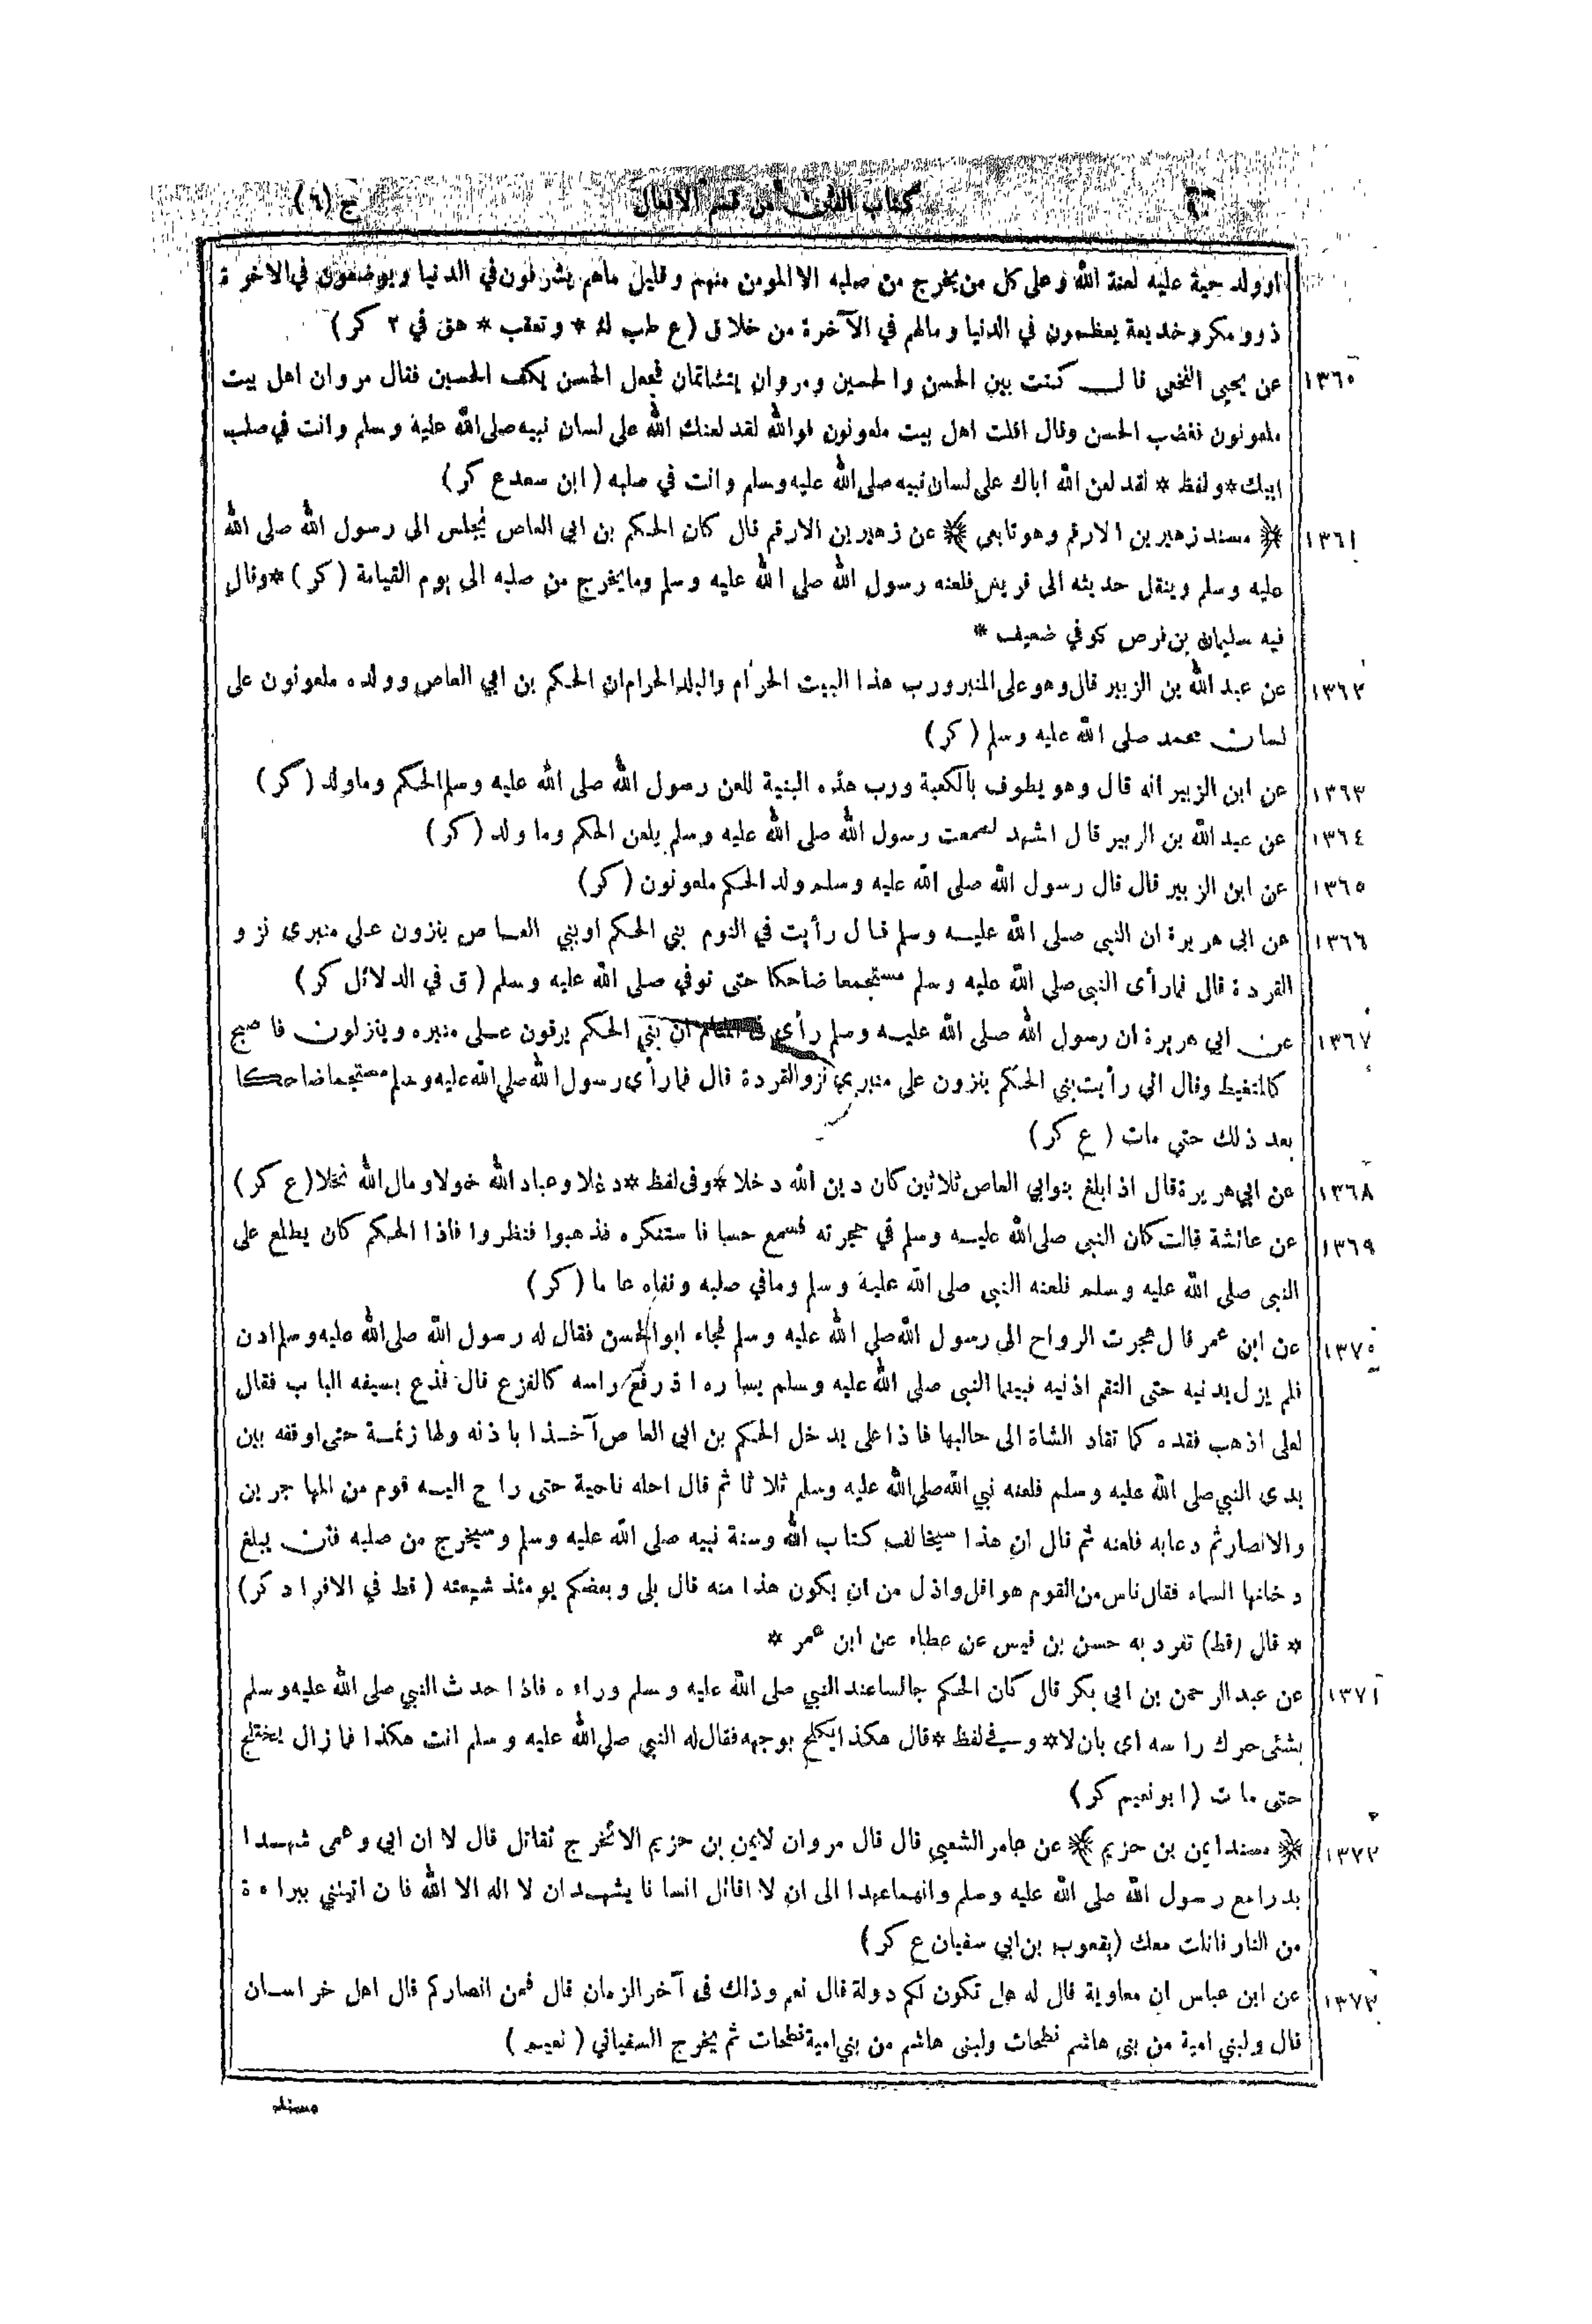 كتاب الفتن من قسم الافعال ج (٦)
اوولد حية عليه لعنة الله وعلى كل من يخرج من صلبه الا المومن منهم وقليل ماهم يشرفون في الدنيا ويوضعون في الاخرة
ذوو مكر وخديعة يعظمون في الدنيا ومالهم في الآخرة من خلاق (ع طب ك * وتعقب * هق في ٢ كر)
١٣٦٠ عن يحيى النخعى قال كنت بين الحسن والحسين ومروان يتشاتمان فجعل الحسن يكف الحسين فقال مروان اهل بيت
ملعونون فغضب الحسن وقال اقلت اهل بيت ملعونون فوالله لقد لعنك الله على لسان نبيه صلى الله عليه وسلم وانت في صلب
ابيك * ولفظ * لقد لعن الله اباك على لسان نبيه صلى الله عليه وسلم وانت في صلبه (ابن سعد ع كر)
١٣٦١ ﴿ مسند زهير بن الارقم وهو تابعى ﴾ عن زهير بن الارقم قال كان الحكم بن ابى العاص يجلس الى رسول الله صلى الله
عليه وسلم وينقل حديثه الى قريش فلعنه رسول الله صلى الله عليه وسلم ومايخرج من صلبه الى يوم القيامة (كر) * وقال
فيه سليمان بن قرص كوفي ضعيف *
١٣٦٢ عن عبد الله بن الزبير قال وهو على المنبر ورب هذا البيت الحرام والبلد الحرام ان الحكم بن ابي العاص وولده ملعونون على
لسان محمد صلى الله عليه وسلم (كر)
١٣٦٣ عن ابن الزبير انه قال وهو يطوف بالكعبة ورب هذه البنية للعن رسول الله صلى الله عليه وسلم الحكم وماولد (كر)
١٣٦٤ عن عبد الله بن الزبير قال اشهد لسمعت رسول الله صلى الله عليه وسلم يلعن الحكم وما ولد (كر)
١٣٦٥ عن ابن الزبير قال قال رسول الله صلى الله عليه وسلم ولد الحكم ملعونون (كر)
١٣٦٦ عن ابى هريرة ان النبى صلى الله عليه وسلم قال رأيت في النوم بني الحكم اوبني العاص ينزون على منبرى نزو
القردة قال فمارأى النبى صلى الله عليه وسلم مستجمعا ضاحكا حتى توفي صلى الله عليه وسلم (ق في الدلائل كر)
١٣٦٧ عن ابي هريرة ان رسول الله صلى الله عليه وسلم رأى فى المنام ان بني الحكم يرقون على منبره وينزلون فاصبح
كالمتغيظ وقال اني رأيت بني الحكم ينزون على منبري نزوالقردة قال فمارأى رسول الله صلى الله عليه وسلم مستجمعا ضاحكا
بعد ذلك حتى مات (ع كر)
١٣٦٨ عن ابي هريرة قال اذا بلغ بنوابي العاص ثلاثين كان دين الله دخلا * وفى لفظ * دغلا وعباد الله خولا ومال الله نحلا (ع كر)
١٣٦٩ عن عائشة قالت كان النبى صلى الله عليه وسلم في حجرته فسمع حسا فاستنكره فذهبوا فنظروا فاذا الحكم كان يطلع على
النبى صلى الله عليه وسلم فلعنه النبى صلى الله عليه وسلم ومافي صلبه ونفاه عاما (كر)
١٣٧٠ عن ابن عمر قال هجرت الرواح الى رسول الله صلى الله عليه وسلم فجاء ابوالحسن فقال له رسول الله صلى الله عليه وسلم ادن
فلم يزل يدنيه حتى التقم اذنيه فبينما النبى صلى الله عليه وسلم يساره اذ رفع راسه كالفزع قال فذع بسيفه الباب فقال
لعلى اذهب فقده كما تقاد الشاة الى حالبها فاذا على يدخل الحكم بن ابى العاص آخذا باذنه ولها زنمة حتى اوقفه بين
يدى النبي صلى الله عليه وسلم فلعنه نبي الله صلى الله عليه وسلم ثلاثا ثم قال احله ناحية حتى راح اليه قوم من المهاجرين
والانصار ثم دعابه فلعنه ثم قال ان هذا سيخالف كتاب الله وسنة نبيه صلى الله عليه وسلم وسيخرج من صلبه فتن يبلغ
دخانها السماء فقال ناس من القوم هو اقل واذل من ان يكون هذا منه قال بلى وبعضكم يومئذ شيعته (قط في الافراد كر)
* قال (قط) تفرد به حسن بن قيس عن عطاء عن ابن عمر *
١٣٧١ عن عبد الرحمن بن ابى بكر قال كان الحكم جالسا عند النبي صلى الله عليه وسلم وراءه فاذا حدث النبي صلى الله عليه وسلم
بشئى حرك راسه اى بان لا * وفي لفظ * قال هكذا يكلح بوجهه فقال له النبي صلى الله عليه وسلم انت هكذا فما زال يختلج
حتى مات (ابونعيم كر)
١٣٧٢ ﴿ مسند ايمن بن خزيم ﴾ عن عامر الشعبي قال قال مروان لايمن بن خزيم الاتخرج تقاتل قال لا ان ابي وعمى شهدا
بدرا مع رسول الله صلى الله عليه وسلم وانهماعهدا الى ان لا اقاتل انسانا يشهد ان لا اله الا الله فان اتيتني ببراءة
من النار قاتلت معك (يعقوب بن ابي سفيان ع كر)
١٣٧٣ عن ابن عباس ان معاوية قال له هل تكون لكم دولة قال نعم وذلك فى آخر الزمان قال فمن انصاركم قال اهل خراسان
قال ولبني امية من بنى هاشم نطحات ولبنى هاشم من بني امية نطحات ثم يخرج السفياني (نعيم)
مسند